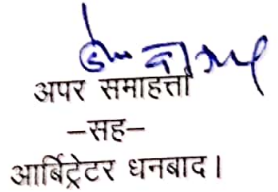 अपर समाहर्त्ता
–सह–
आर्बिट्रेटर धनबाद।